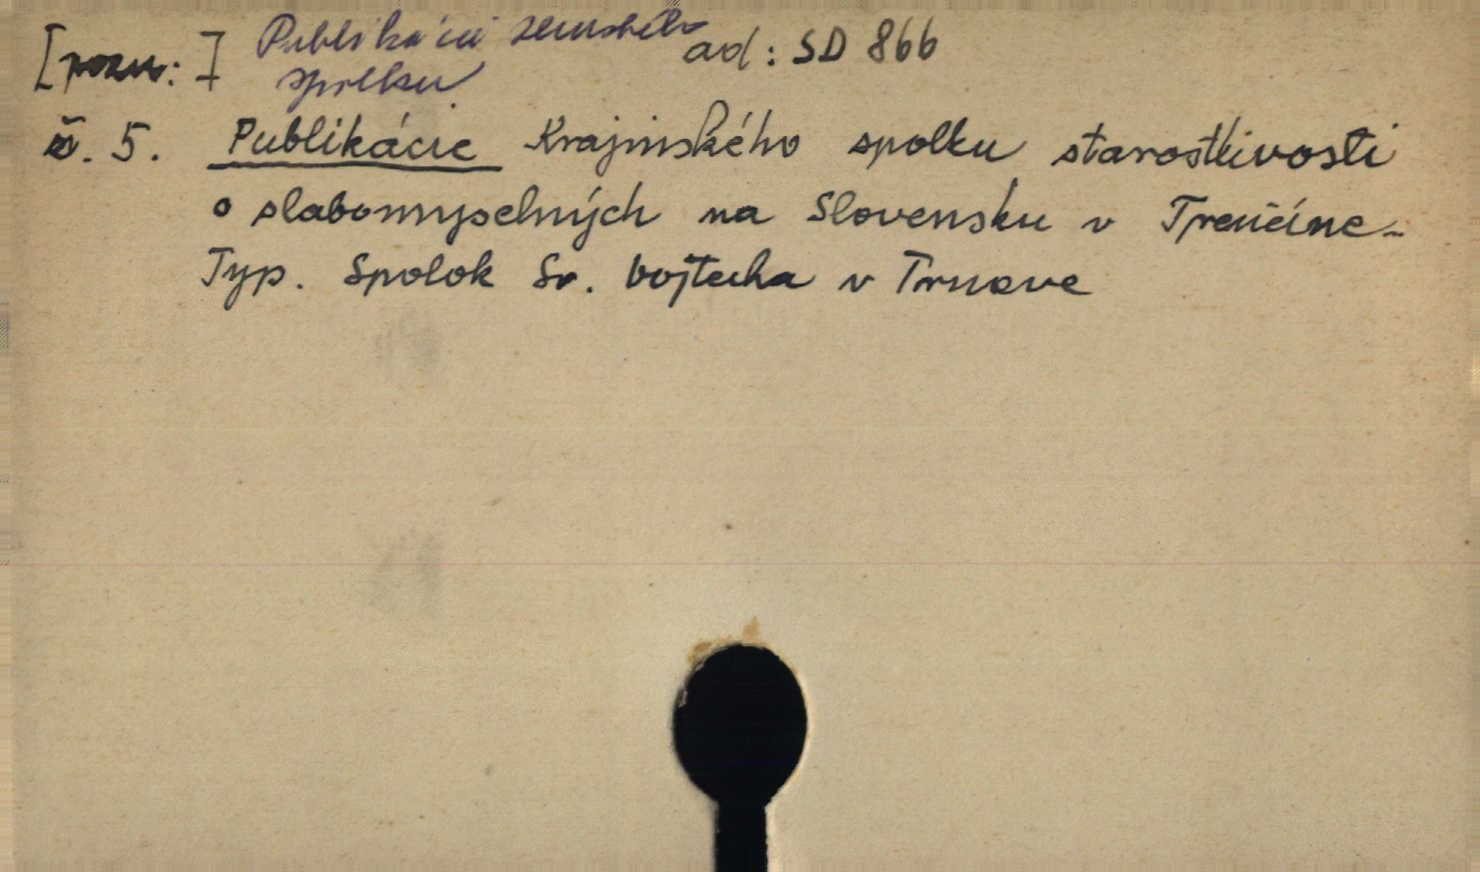 [pozn:] Publikácií zemského ad: SD 866
spolku
č. 5. Publikácie Krajinského spolku starostlivosti
o slabomyselných na Slovensku v Trenčíne-
Typ. Spolok Sv. Vojtecha v Trnave